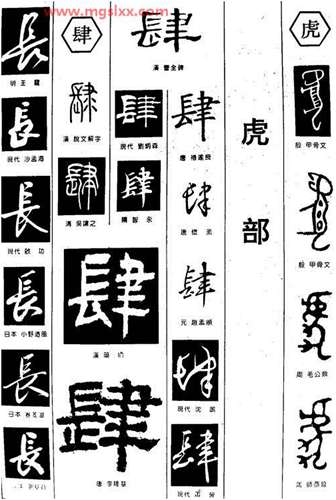 www.mgslxx.com
長
明 王寵
長
現代 沙孟海
長
現代 啟功
長
日本 小野道風
長
日本
長
肆
肆
漢 曹全碑
肆
漢 說文解字
肆
現代 劉炳森
肆
清 吳讓之
肆
隋 智永
肆
漢
肆
唐
肆
唐 褚遂良
肆
唐 懷素
肆
元 趙孟頫
肆
現代 沈
肆
現代
虎部
虎
虎
殷 甲骨文
虎
殷 甲骨文
虎
周 毛公鼎
虎
周